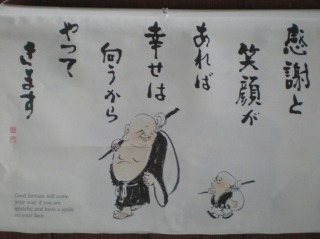 感謝と
笑顔が
あれば
幸せは
向うから
やって
きます
Good fortune will come
your way if you are
grateful and have a smile
on your face.